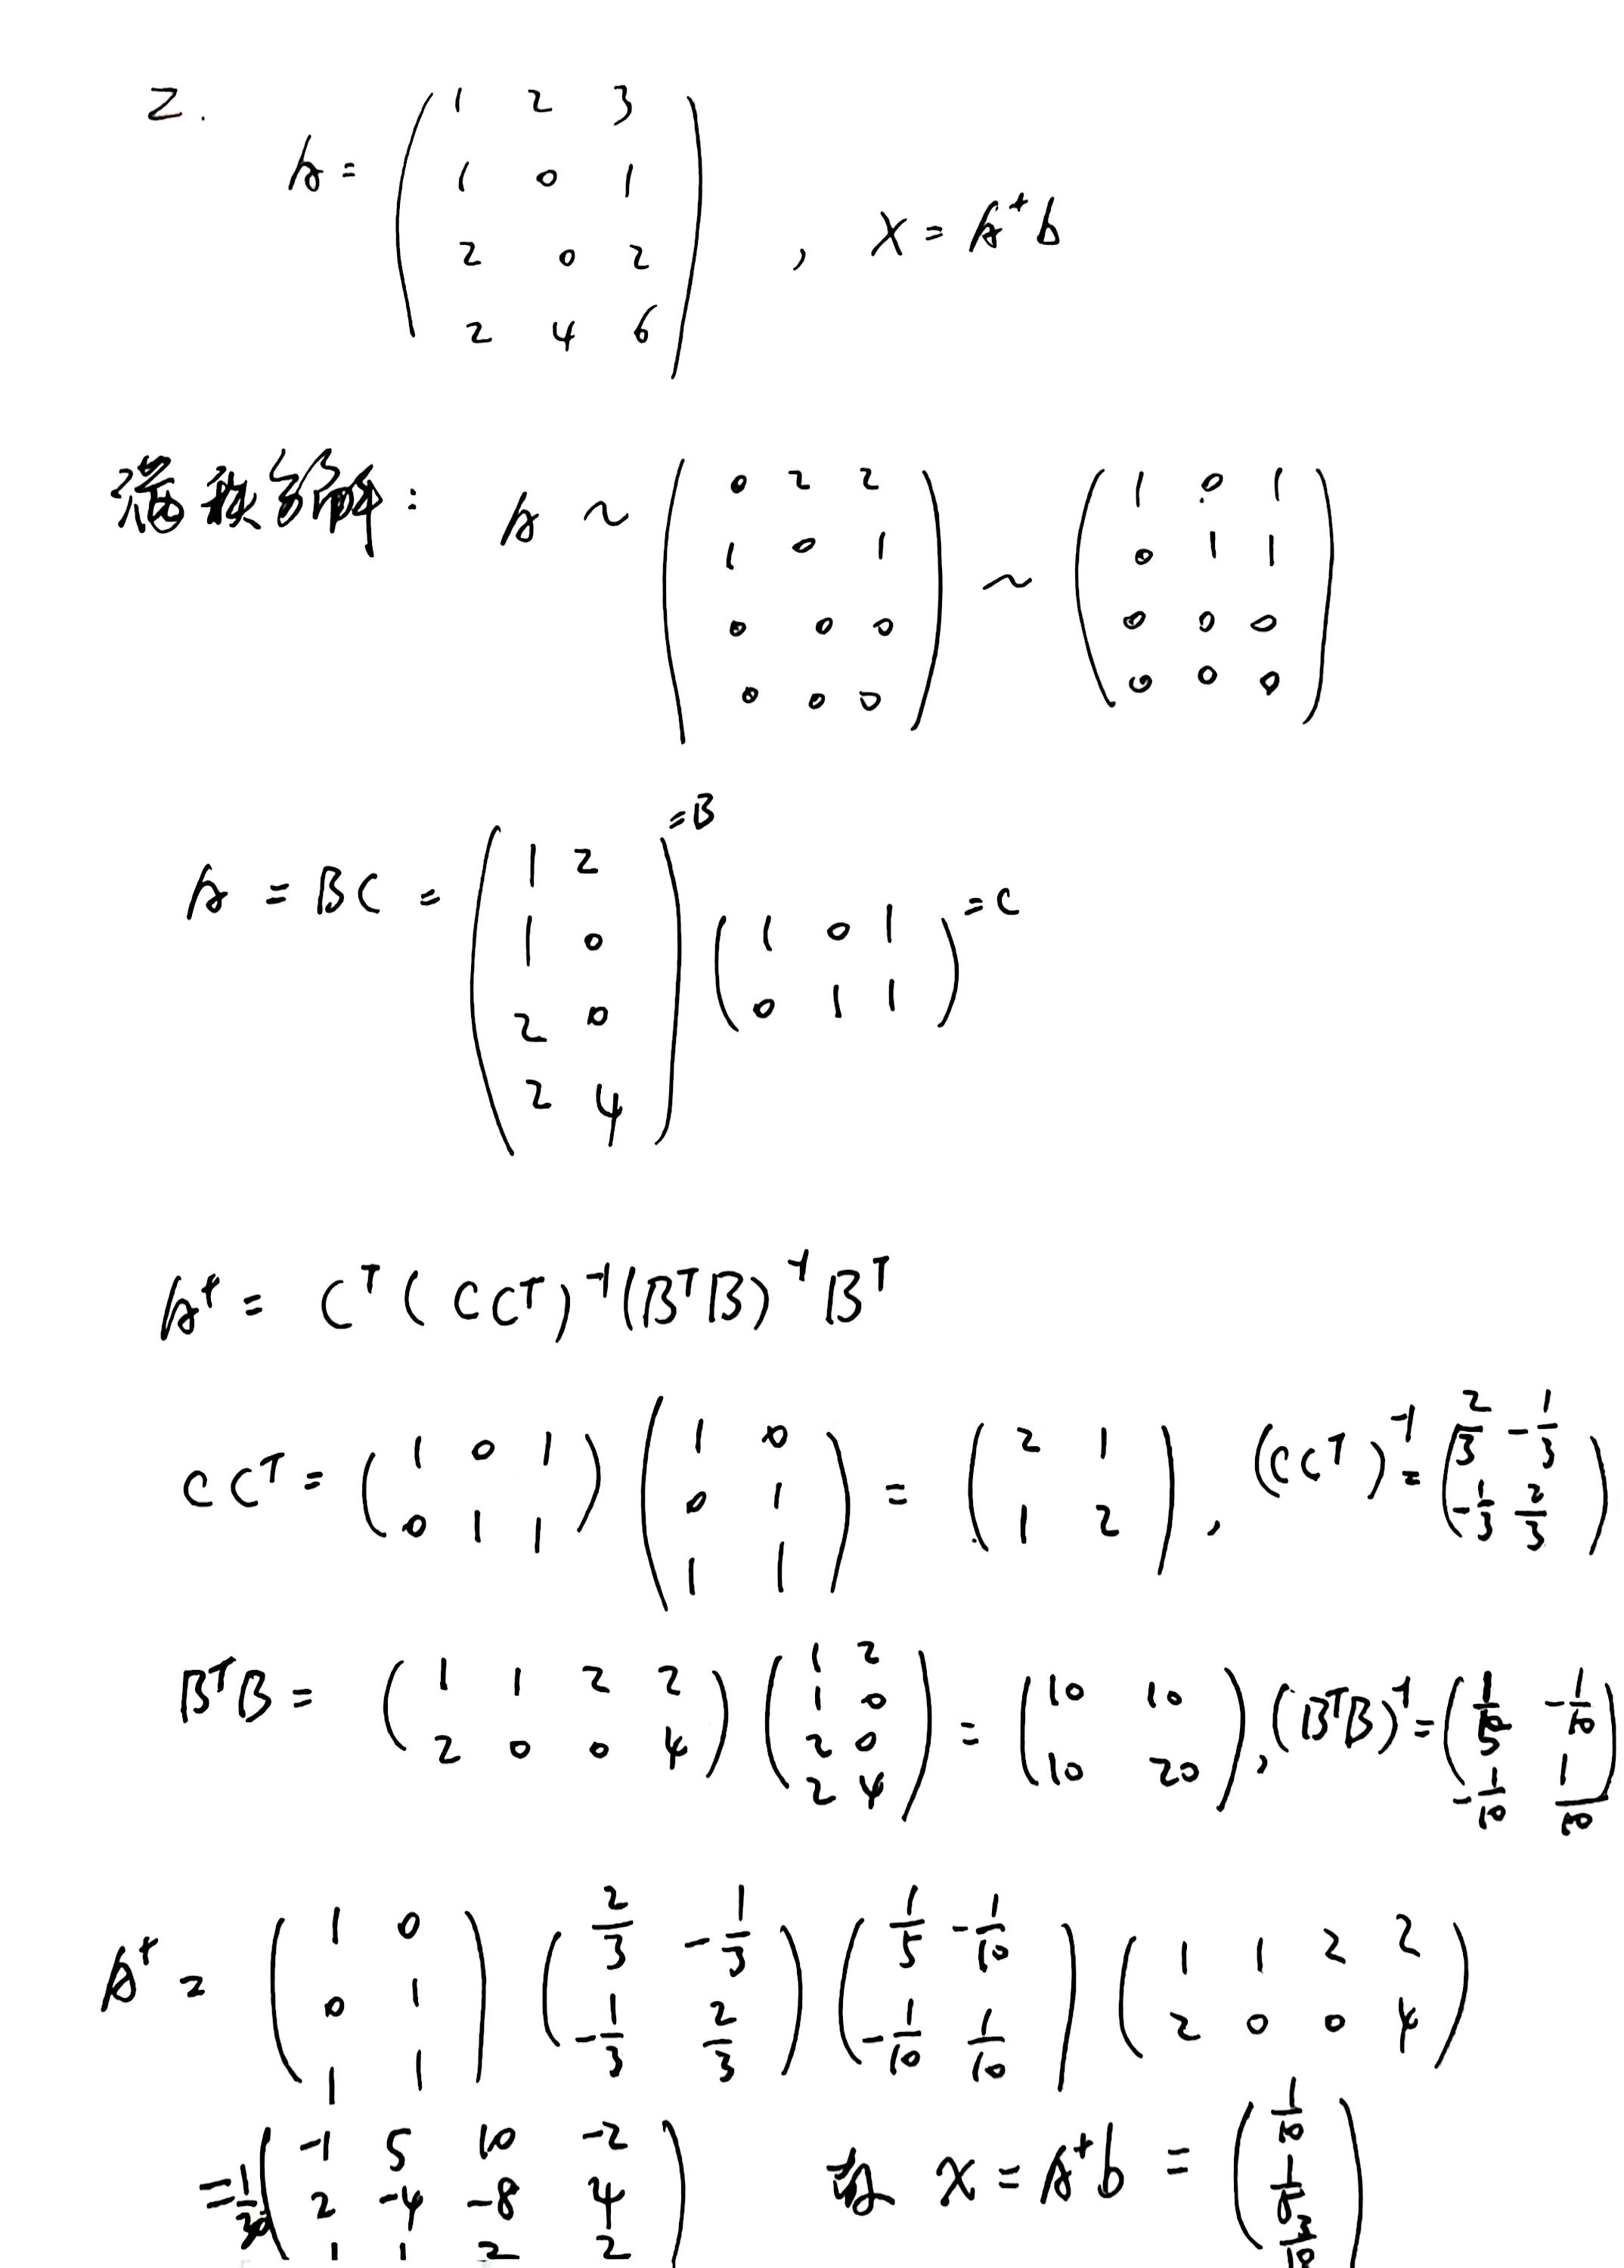 2.
A = ( 1 2 3 ; 1 0 1 ; 2 0 2 ; 2 4 6 ) , X = A⁺b
满秩分解: A ~ ( 0 2 2 ; 1 0 1 ; 0 0 0 ; 0 0 0 ) ~ ( 1 0 1 ; 0 1 1 ; 0 0 0 ; 0 0 0 )
A = BC = ( 1 2 ; 1 0 ; 2 0 ; 2 4 )=B ( 1 0 1 ; 0 1 1 )=C
A⁺ = Cᵀ(CCᵀ)⁻¹(BᵀB)⁻¹Bᵀ
CCᵀ = ( 1 0 1 ; 0 1 1 ) ( 1 0 ; 0 1 ; 1 1 ) = ( 2 1 ; 1 2 ) , (CCᵀ)⁻¹ = ( 2/3 -1/3 ; -1/3 2/3 )
BᵀB = ( 1 1 2 2 ; 2 0 0 4 ) ( 1 2 ; 1 0 ; 2 0 ; 2 4 ) = ( 10 10 ; 10 20 ) , (BᵀB)⁻¹ = ( 1/5 -1/10 ; -1/10 1/10 )
A⁺ = ( 1 0 ; 0 1 ; 1 1 ) ( 2/3 -1/3 ; -1/3 2/3 ) ( 1/5 -1/10 ; -1/10 1/10 ) ( 1 1 2 2 ; 2 0 0 4 )
= 1/30 ( -1 5 10 -2 ; 2 -4 -8 4 ; 1 1 2 2 ) x = A⁺b = ( 1/10 ; 1/5 ; 3/10 )